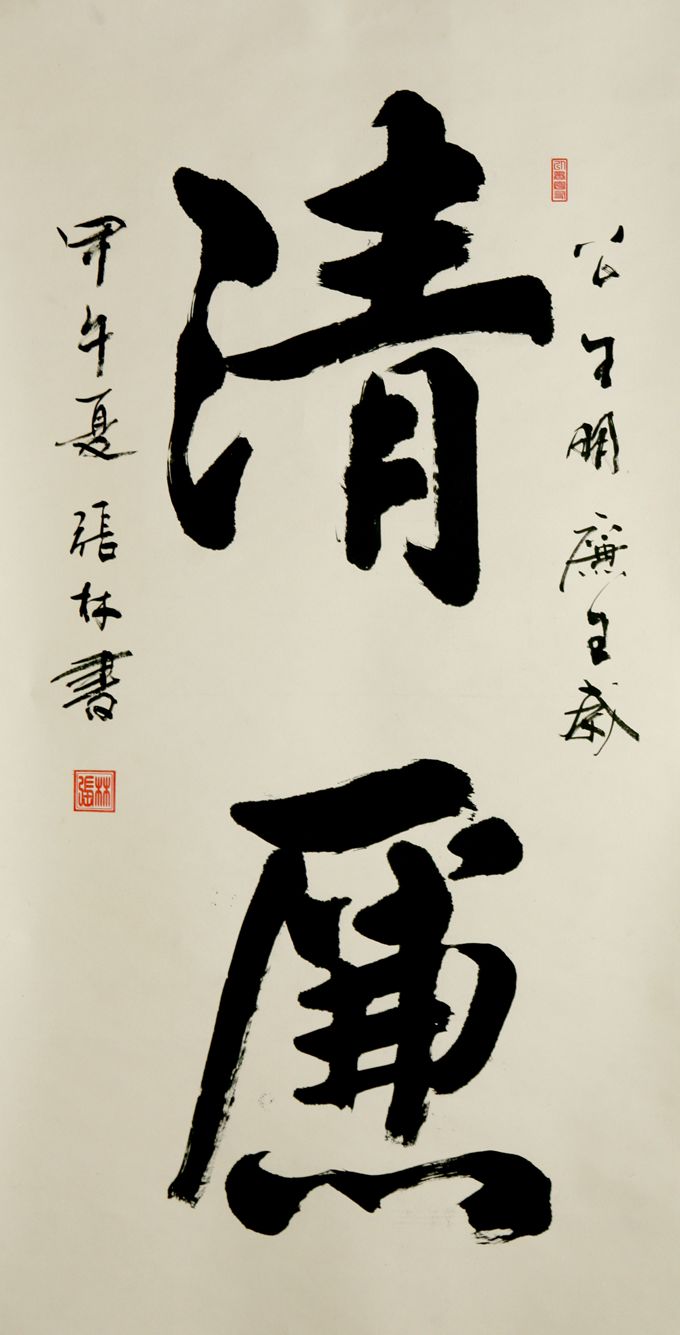 公生明廉生威
清廉
甲午夏張林書
張林